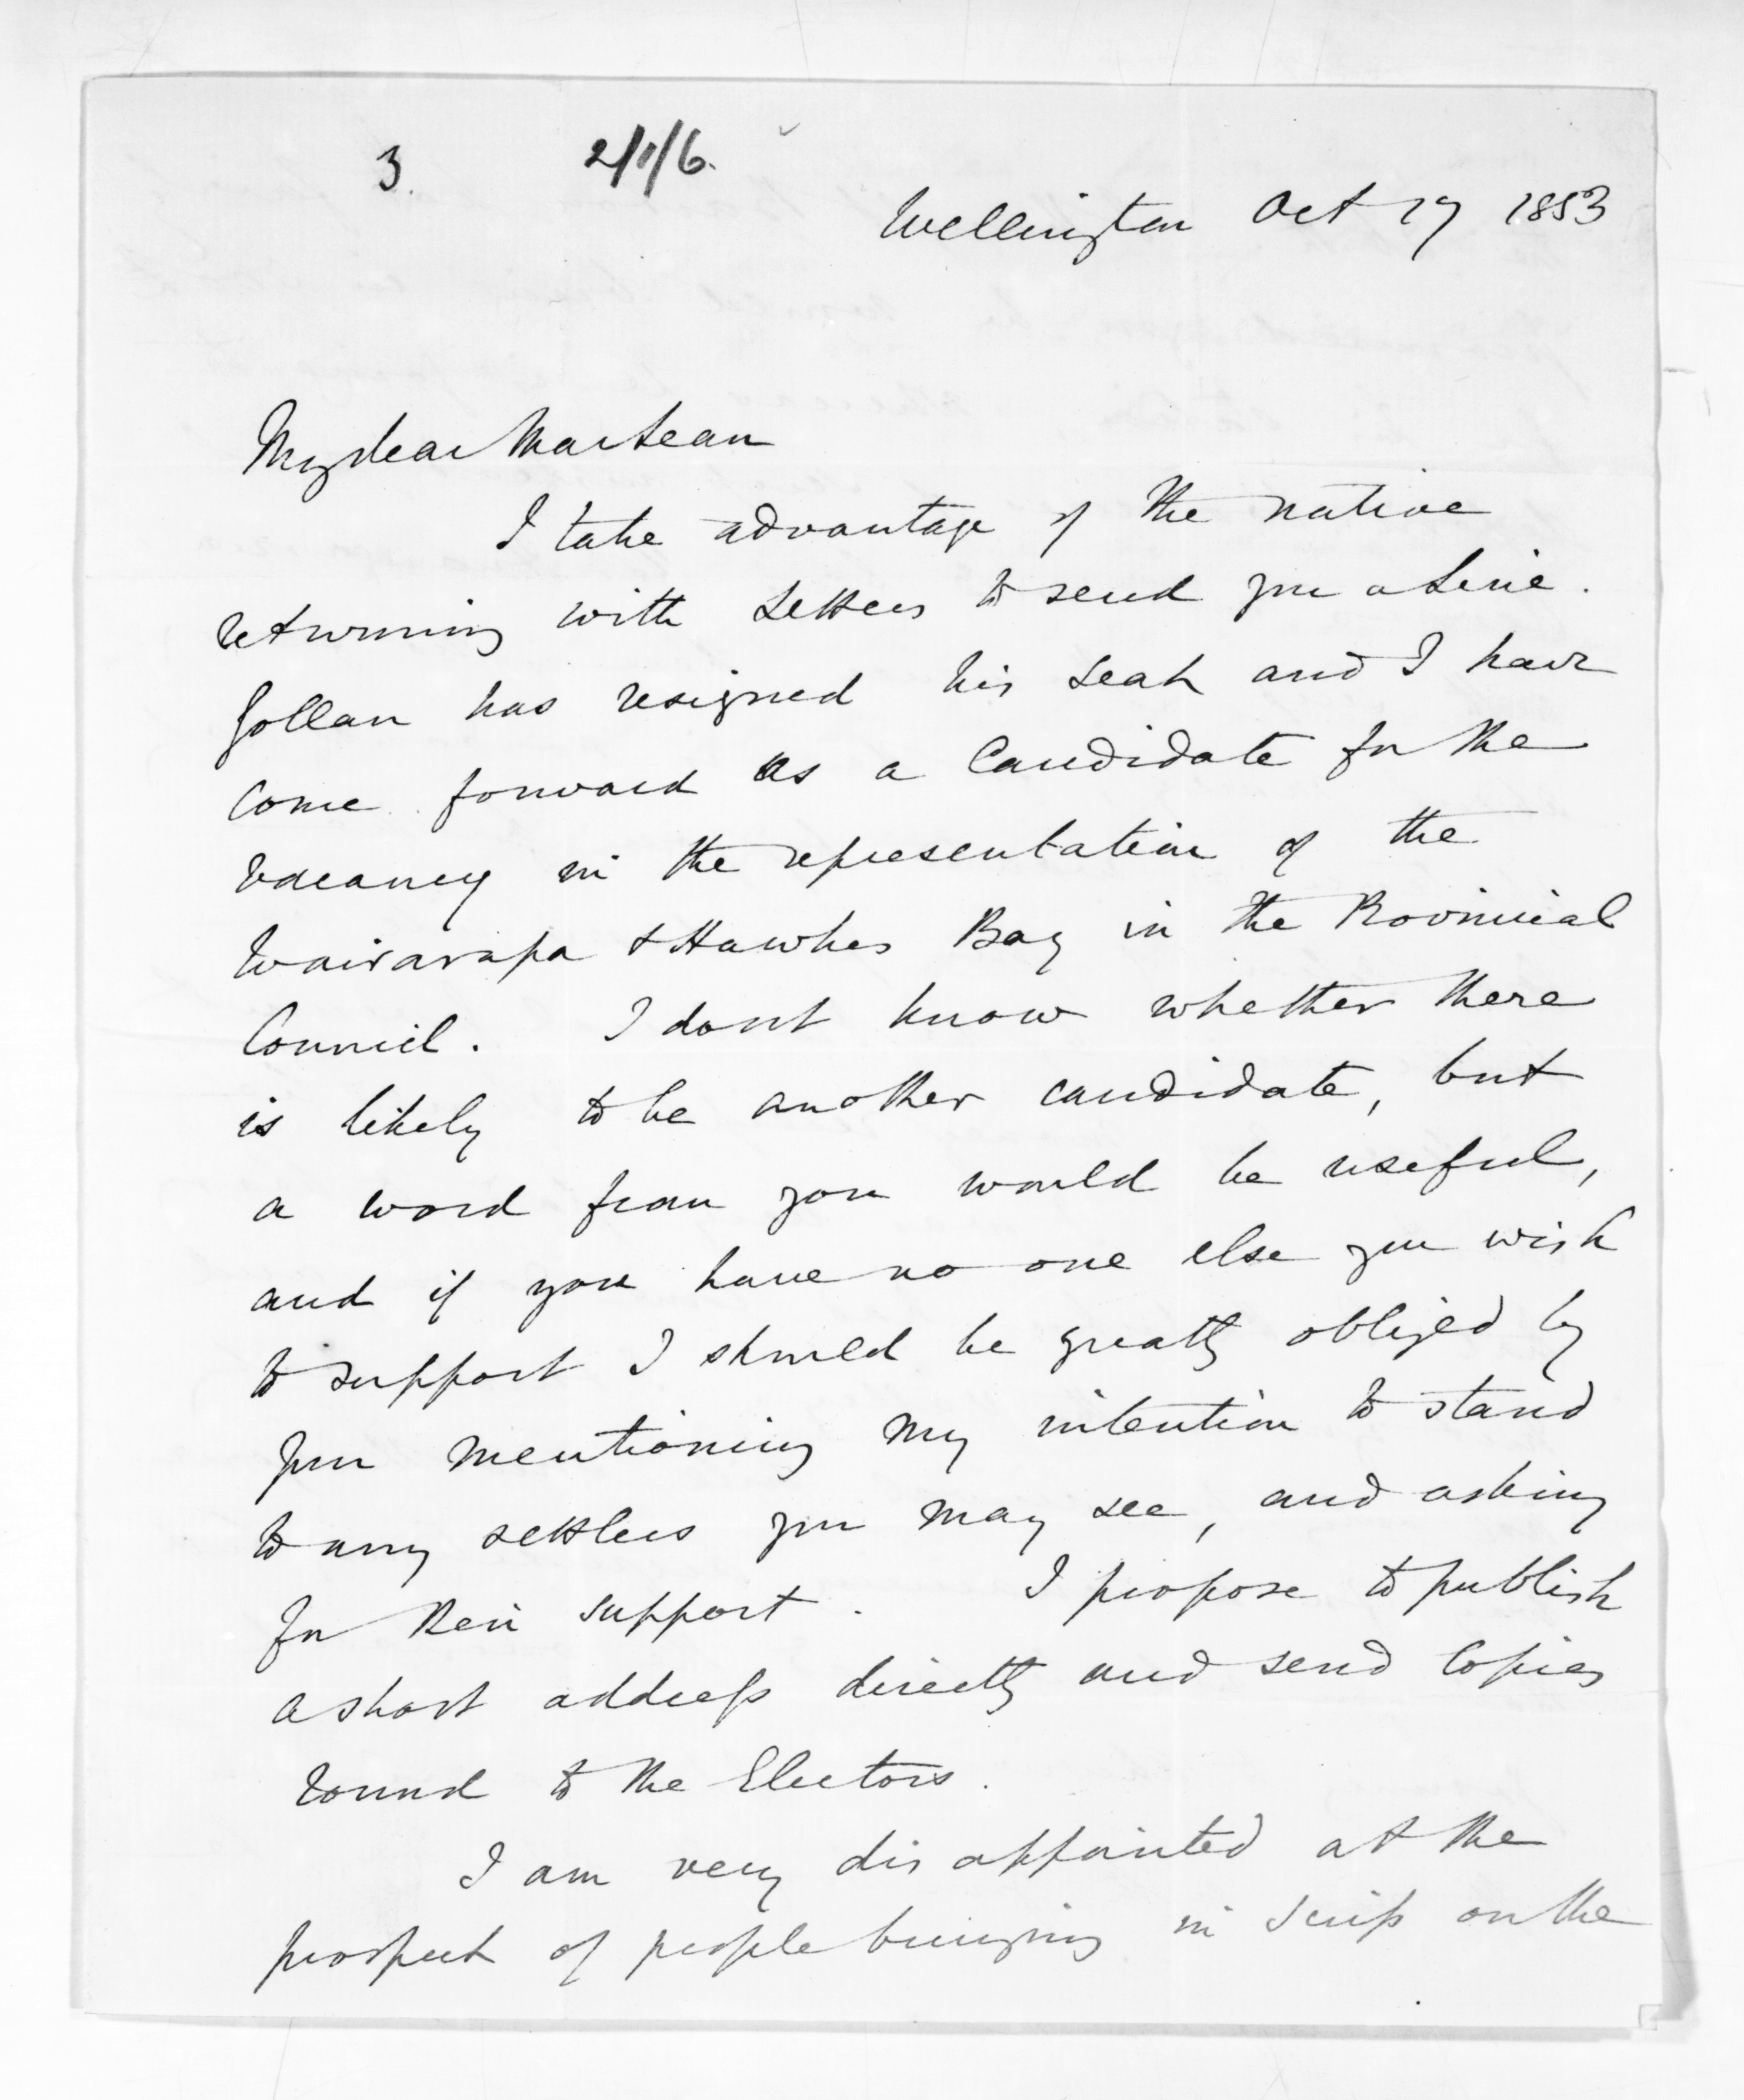 3.
2/1/6.
Wellington Oct 17 1853
My dear MacLean
I take advantage of the native
returning with letters to send you a line.
Gollan has resigned his seat and I have
come forward as a Candidate for the
vacancy in the representation of the
Wairarapa & Hawkes Bay in the Provincial
Council. I dont know whether there
is likely to be another candidate, but
a word from you would be useful,
and if you have no one else you wish
to support I should be greatly obliged by
your mentioning my intention to stand
to any settlers you may see, and asking
for their support. I propose to publish
a short address directly and send copies
round to the Electors.
I am very disappointed at the
prospect of people bringing in scrip on the